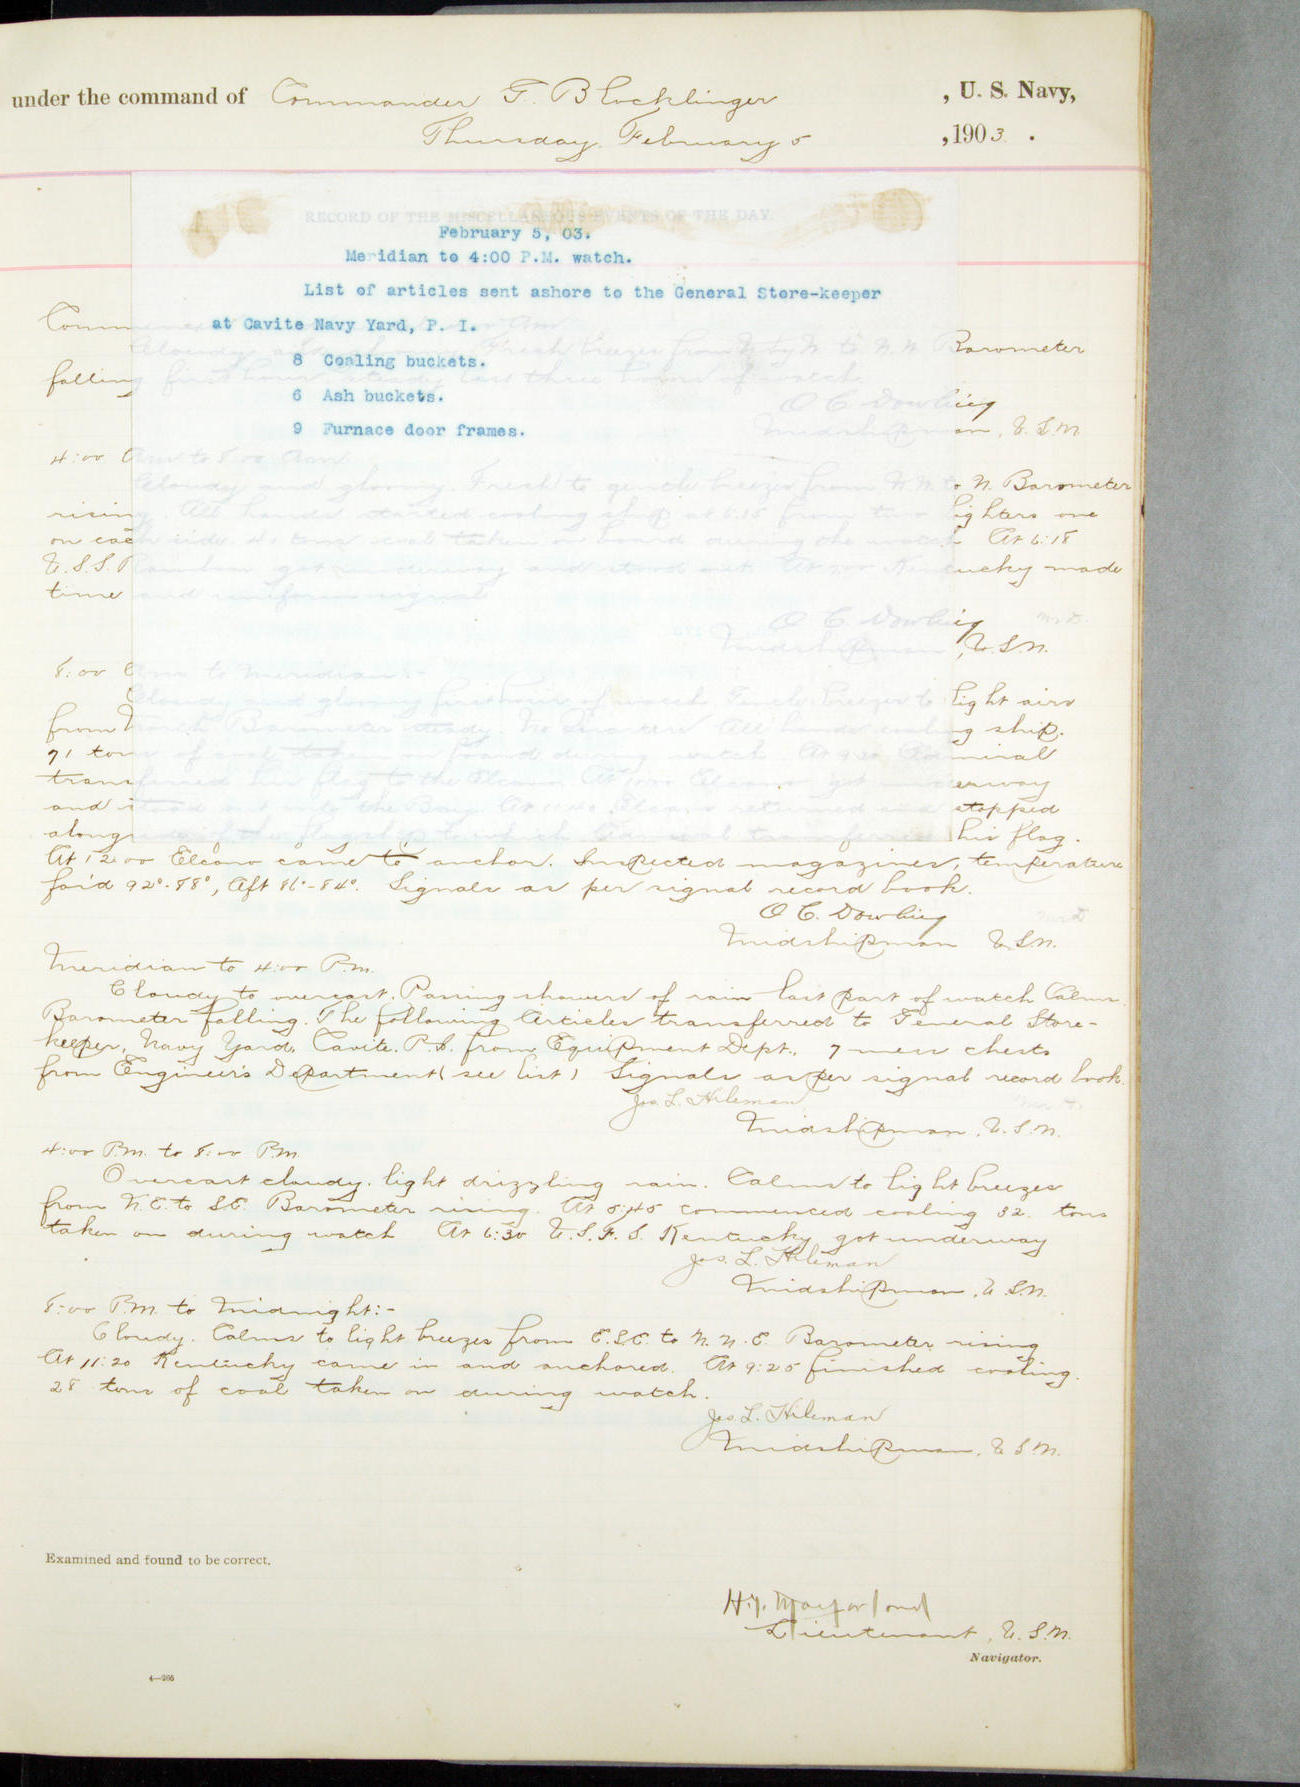 under the command of Commander G. Blocklinger, U. S. Navy,
Thursday February 5, 1903.
RECORD OF THE MISCELLANEOUS EVENTS OF THE DAY.
February 5, 03.
Meridian to 4:00 P.M. watch.
List of articles sent ashore to the General Store-keeper
at Cavite Navy Yard, P. I.
8 Coaling buckets.
6 Ash buckets.
9 Furnace door frames.
Cloudy Fresh breezes from N by W to N.W. Barometer
falling first hour steady last three hours of watch
O C Dowling
Midshipman, U.S.N
4:00 Am to 8:00 Am
Cloudy and gloomy. Fresh to gentle breezes from N.W. to N. Barometer
rising. All hands started coaling ship at 6:15 from two lighters one
on each side. 41 tons coal taken on board during the watch At 6:18
U.S.S. Rainbow got underway and stood out. At 7:00 Kentucky made
time and uniform signal
O. C. Dowling
Midshipman, U.S.N.
8:00 Am to Meridian:-
Cloudy and gloomy first hour of watch. Gentle breezes to light airs
from North Barometer steady. No quarters All hands coaling ship.
71 tons of coal taken on board during watch At 9:20 Admiral
transferred his flag to the Elcano. At 10:00 Elcano got underway
and stood out into the Bay. At 11:40 Elcano returned and stopped
alongside of the flagship to which Admiral transferred his flag.
At 12:00 Elcano came to anchor. Inspected magazines, temperature
for'd 92°-88°, Aft 86°-84°. Signals as per signal record book.
O C. Dowling
Midshipman U.S.N.
Meridian to 4:00 P.m.
Cloudy to overcast. Passing showers of rain last part of watch Calms.
Barometer falling. The following Articles transferred to General Store-
keeper, Navy Yard, Cavite. P.I. from Equipment Dept., 7 mess chests
from Engineer's Department (see list) Signals as per signal record book.
Jos. L. Hileman
Midshipman, U.S.N.
4:00 P.m. to 8:00 P.m.
Overcast cloudy. light drizzling rain. Calms to light breezes
from N.E. to S.E. Barometer rising. At 5:45 commenced coaling 32 tons
taken on during watch At 6:30 U.S.F.S. Kentucky got underway
Jos. L. Hileman
Midshipman, U.S.N.
8:00 P.m. to Midnight:-
Cloudy. Calms to light breezes from E.S.E. to N.N.E. Barometer rising
At 11:20 Kentucky came in and anchored. At 9:25 finished coaling.
28 tons of coal taken on during watch.
Jos L. Hileman
Midshipman, U.S.N.
Examined and found to be correct.
Lieutenant, U.S.N.
Navigator.
4—266